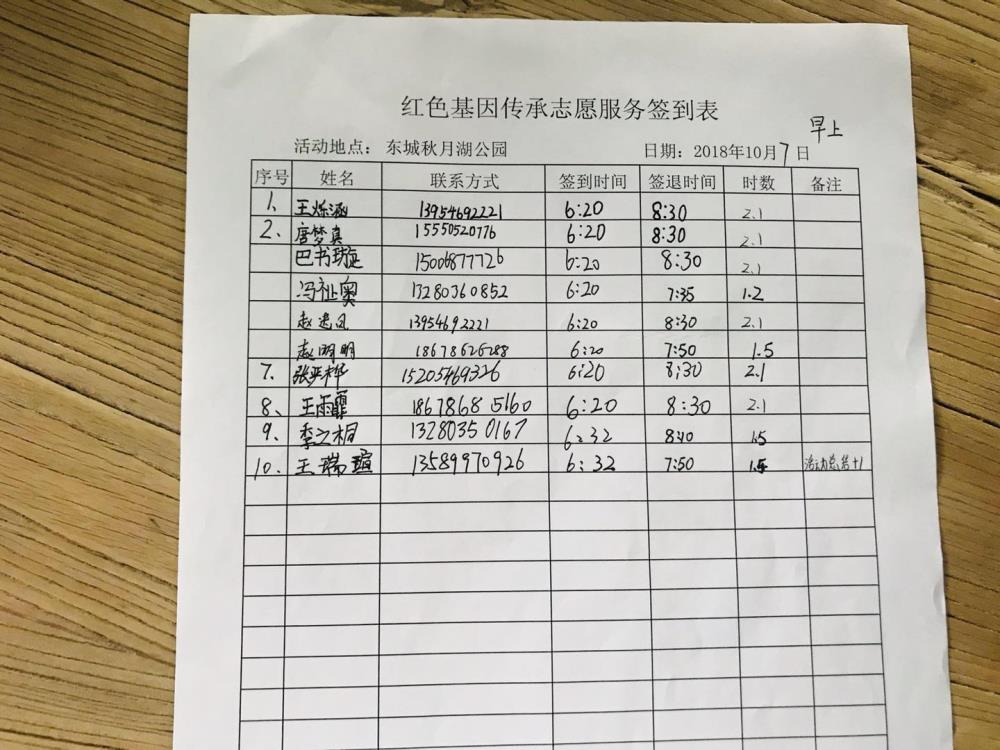 红色基因传承志愿服务签到表
早上
活动地点：东城秋月湖公园 日期：2018年10月7日
序号 姓名 联系方式 签到时间 签退时间 时数 备注
1、 王烁涵 13954692221 6:20 8:30 2.1
2、 唐梦真 15550520776 6:20 8:30 2.1
巴书璇 15006877726 6:20 8:30 2.1
冯祉奥 13280360852 6:20 7:35 1.2
赵 13954692221 6:20 8:30 2.1
赵明明 18678626288 6:20 7:50 1.5
7、 张 15205469326 6:20 8:30 2.1
8、 王雨霏 18678685160 6:20 8:30 2.1
9、 李之桐 13280350167 6:32 8:10 1.5
10、 王瑞瑄 13589970926 6:32 7:50 活动总结+1